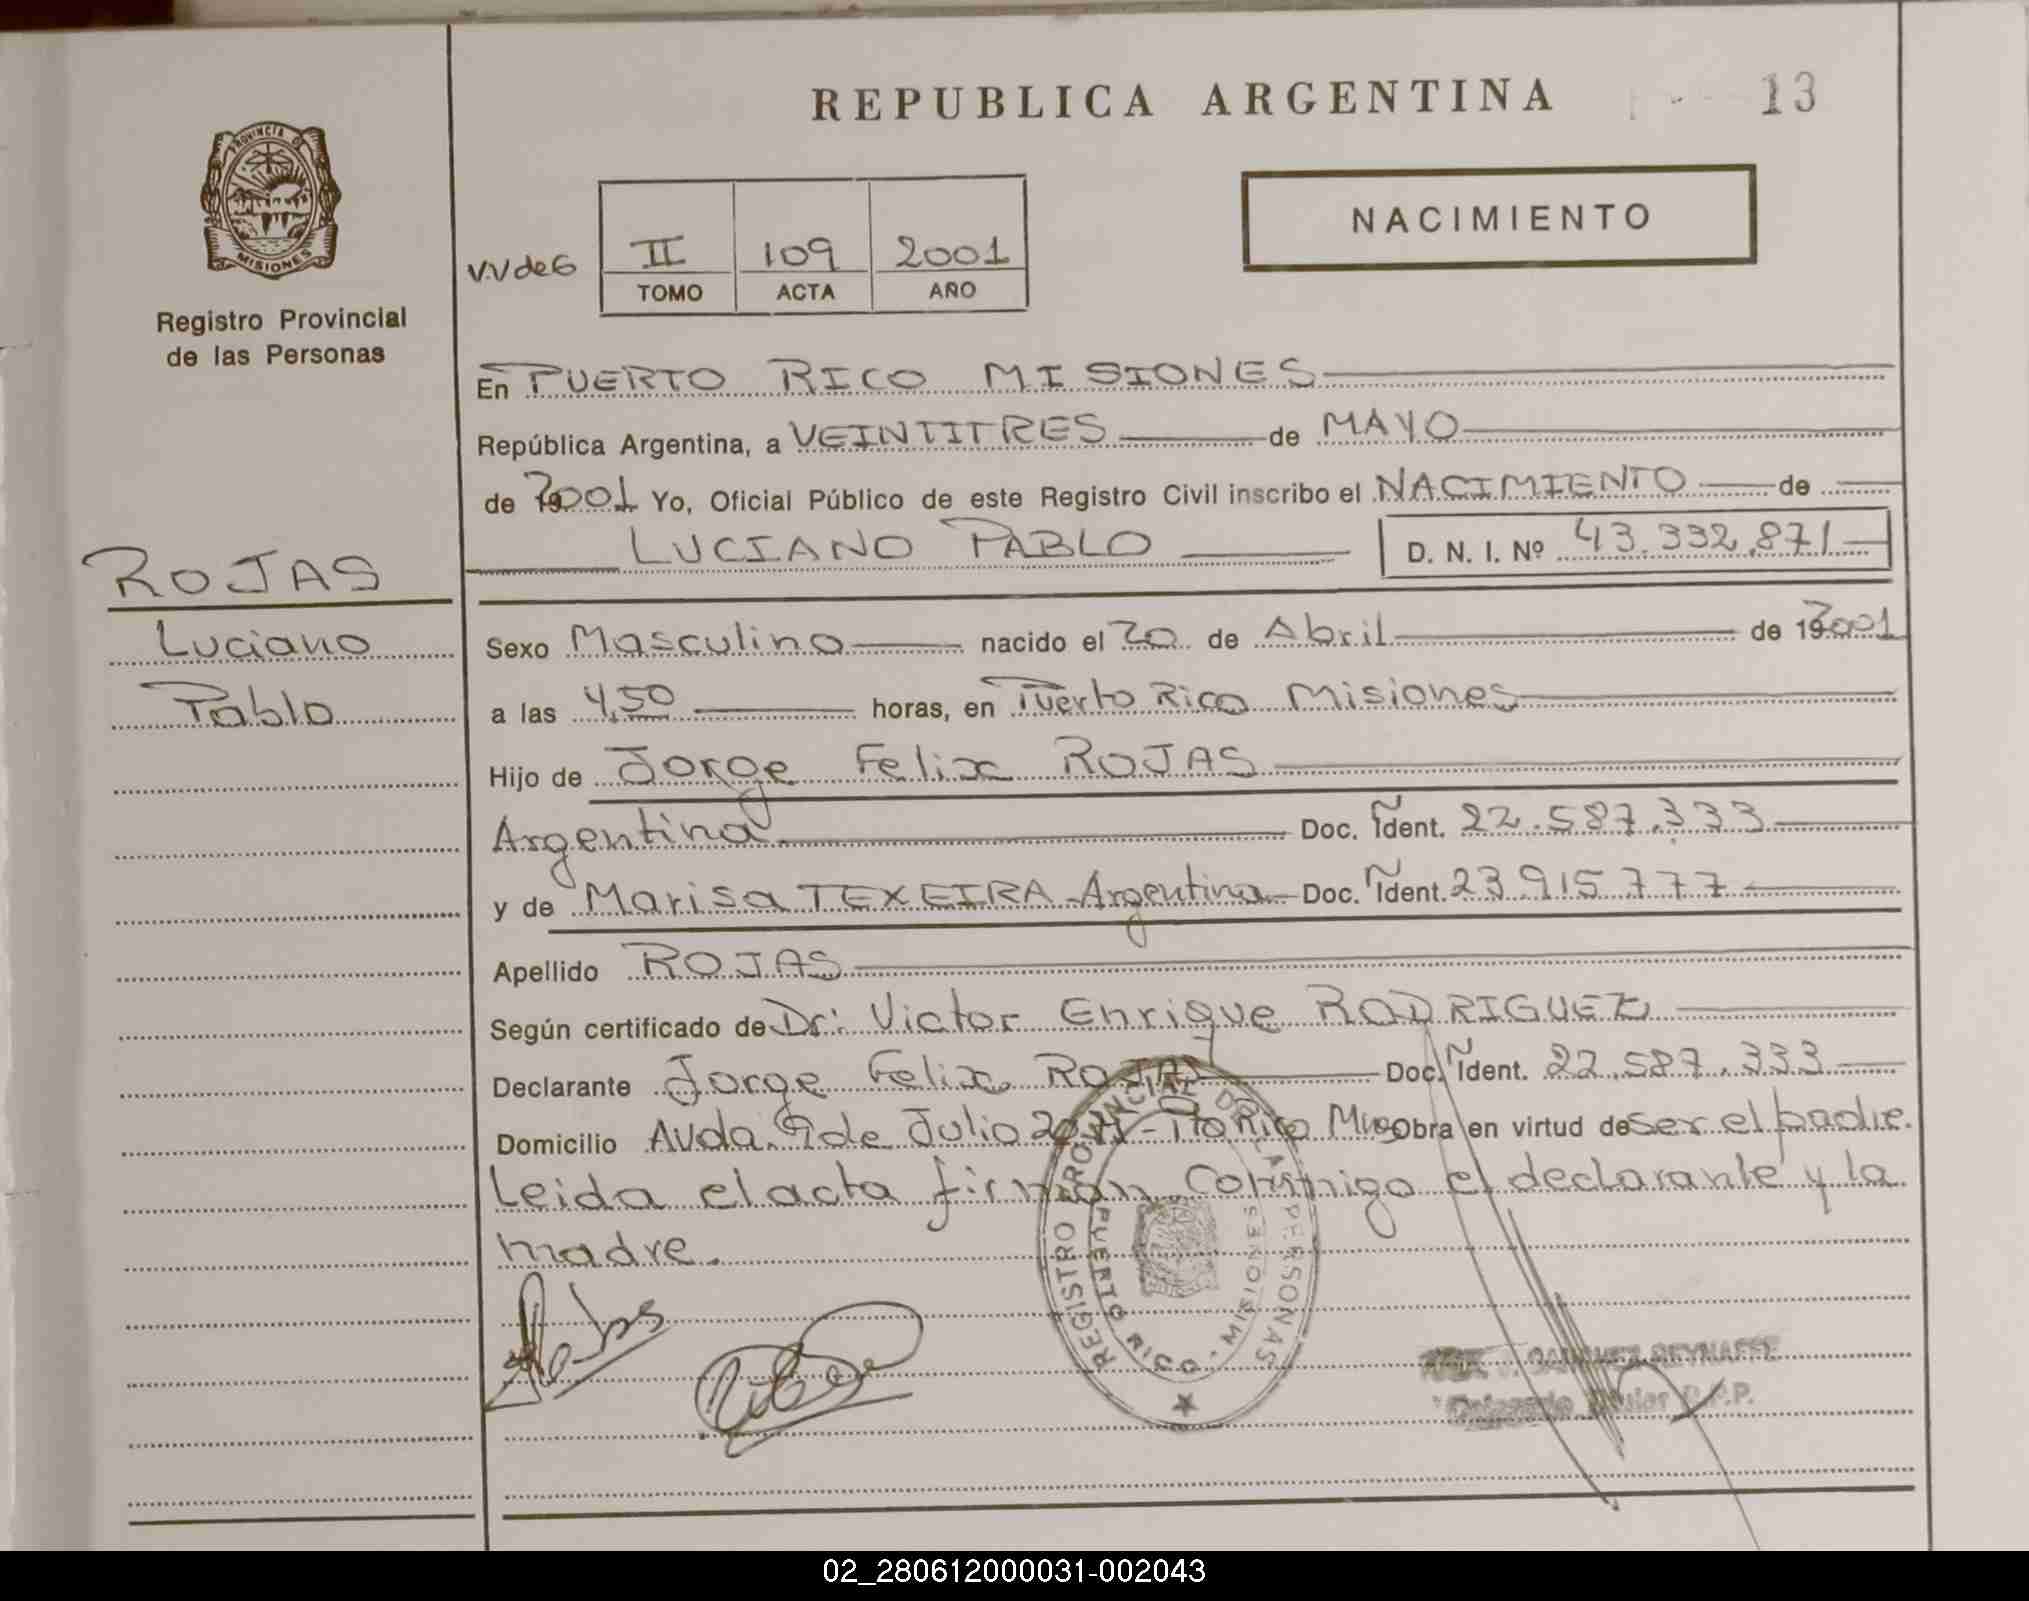 REPUBLICA ARGENTINA
13
PROVINCIA DE
MISIONES
Registro Provincial
de las Personas
V.V de G
II 109 2001
TOMO ACTA AÑO
NACIMIENTO
En PUERTO RICO MISIONES
República Argentina, a VEINTITRES de MAYO
de 2001 Yo, Oficial Público de este Registro Civil inscribo el NACIMIENTO de
LUCIANO PABLO D. N. I. Nº 43.332.871
ROJAS
Luciano
Pablo
Sexo Masculino nacido el 20 de Abril de 2001
a las 4,50 horas, en Puerto Rico Misiones
Hijo de Jorge Felix ROJAS
Argentina Doc. Ident. 22.587.333
y de Marisa TEXEIRA - Argentina Doc. Ident. 23915777
Apellido ROJAS
Según certificado de Dr: Victor Enrique RODRIGUEZ
Declarante Jorge Felix ROJAS Doc. Ident. 22.587.333
Domicilio Avda. 9 de Julio - Pto Rico Mnes Obra en virtud de ser el padre.
Leida el acta firman conmigo el declarante y la
madre.
REGISTRO PROVINCIAL DE LAS PERSONAS
PUERTO RICO - MISIONES
R.P.P.
02_280612000031-002043